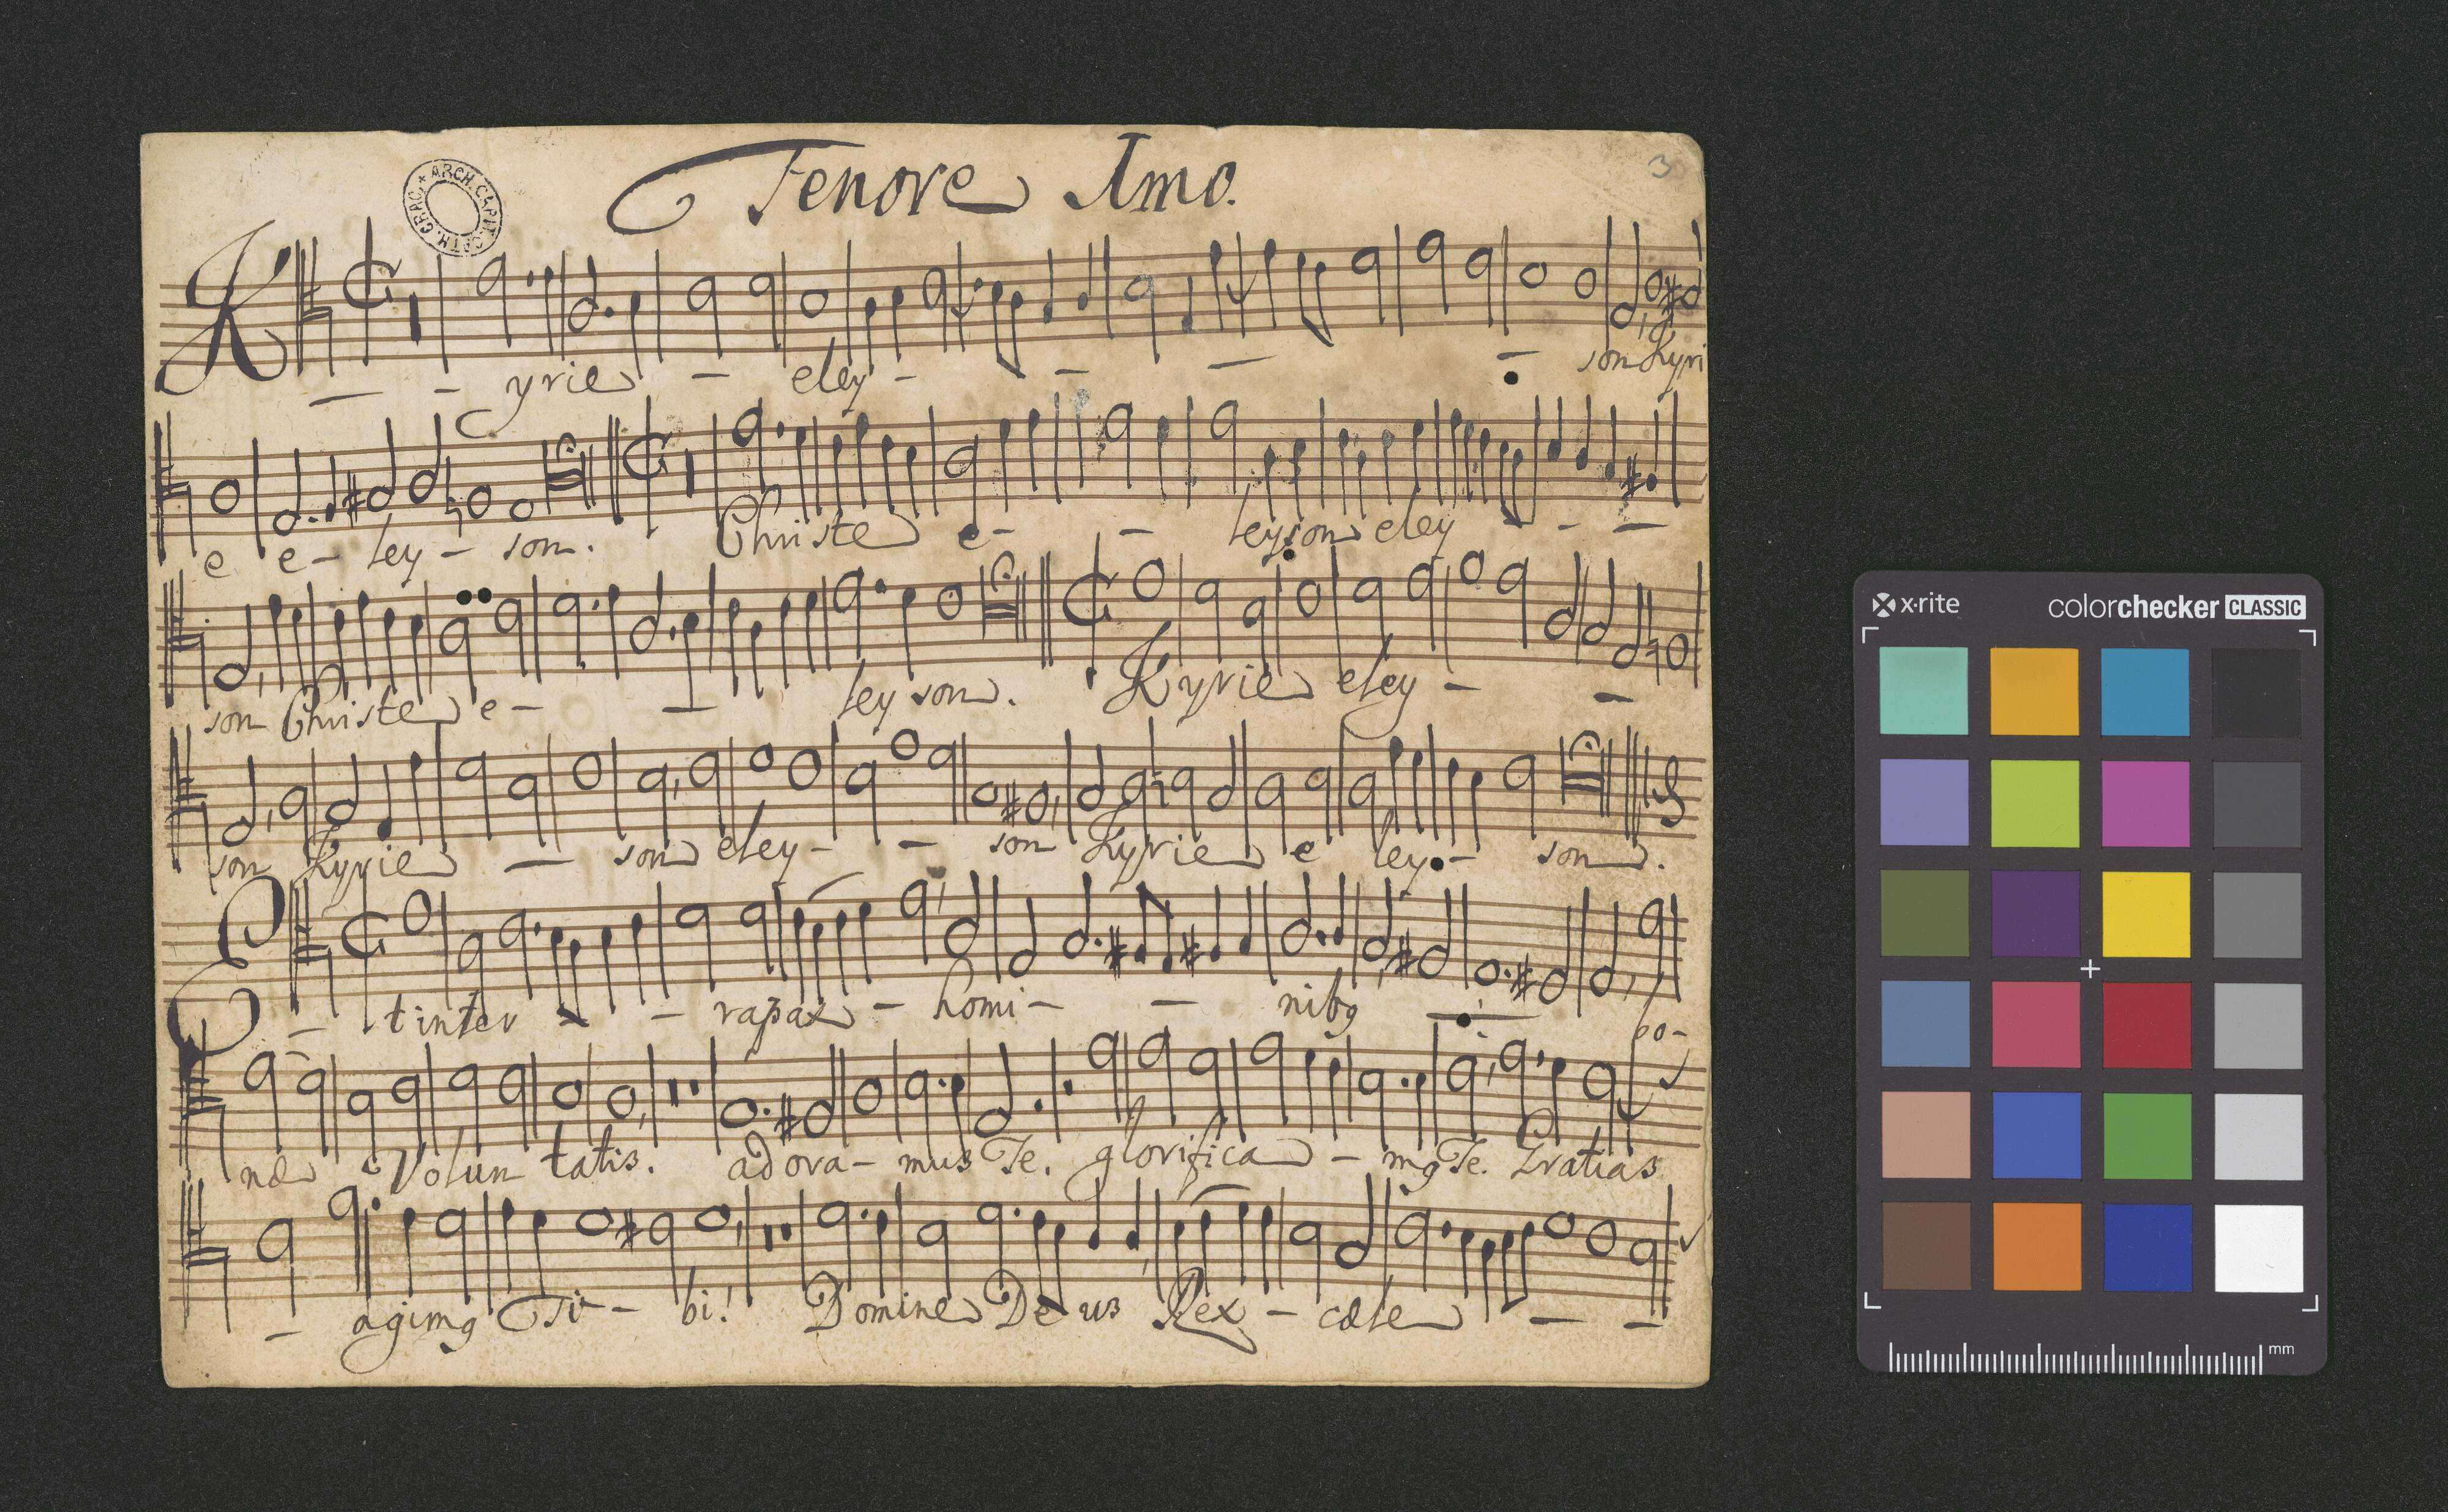 Tenore Imo.
3
ARCH. CAPIT. CATH. CRAC. +
Kyrie – eley – – – – son Kyri
e e – ley – son. Christe e – – leyson eley – –
son Christe e – – ley son. Kyrie eley – –
son Kyrie – son eley – – son Kyrie e ley – son.
Et inter – – rapax – homi – – nibg – bo–
næ Volun tatis. adora – mus Te. glorifica – mg Te. Gratias
– agimg Ti – bi. Domine Deus Rex – cæle – –
x·rite colorchecker CLASSIC
mm